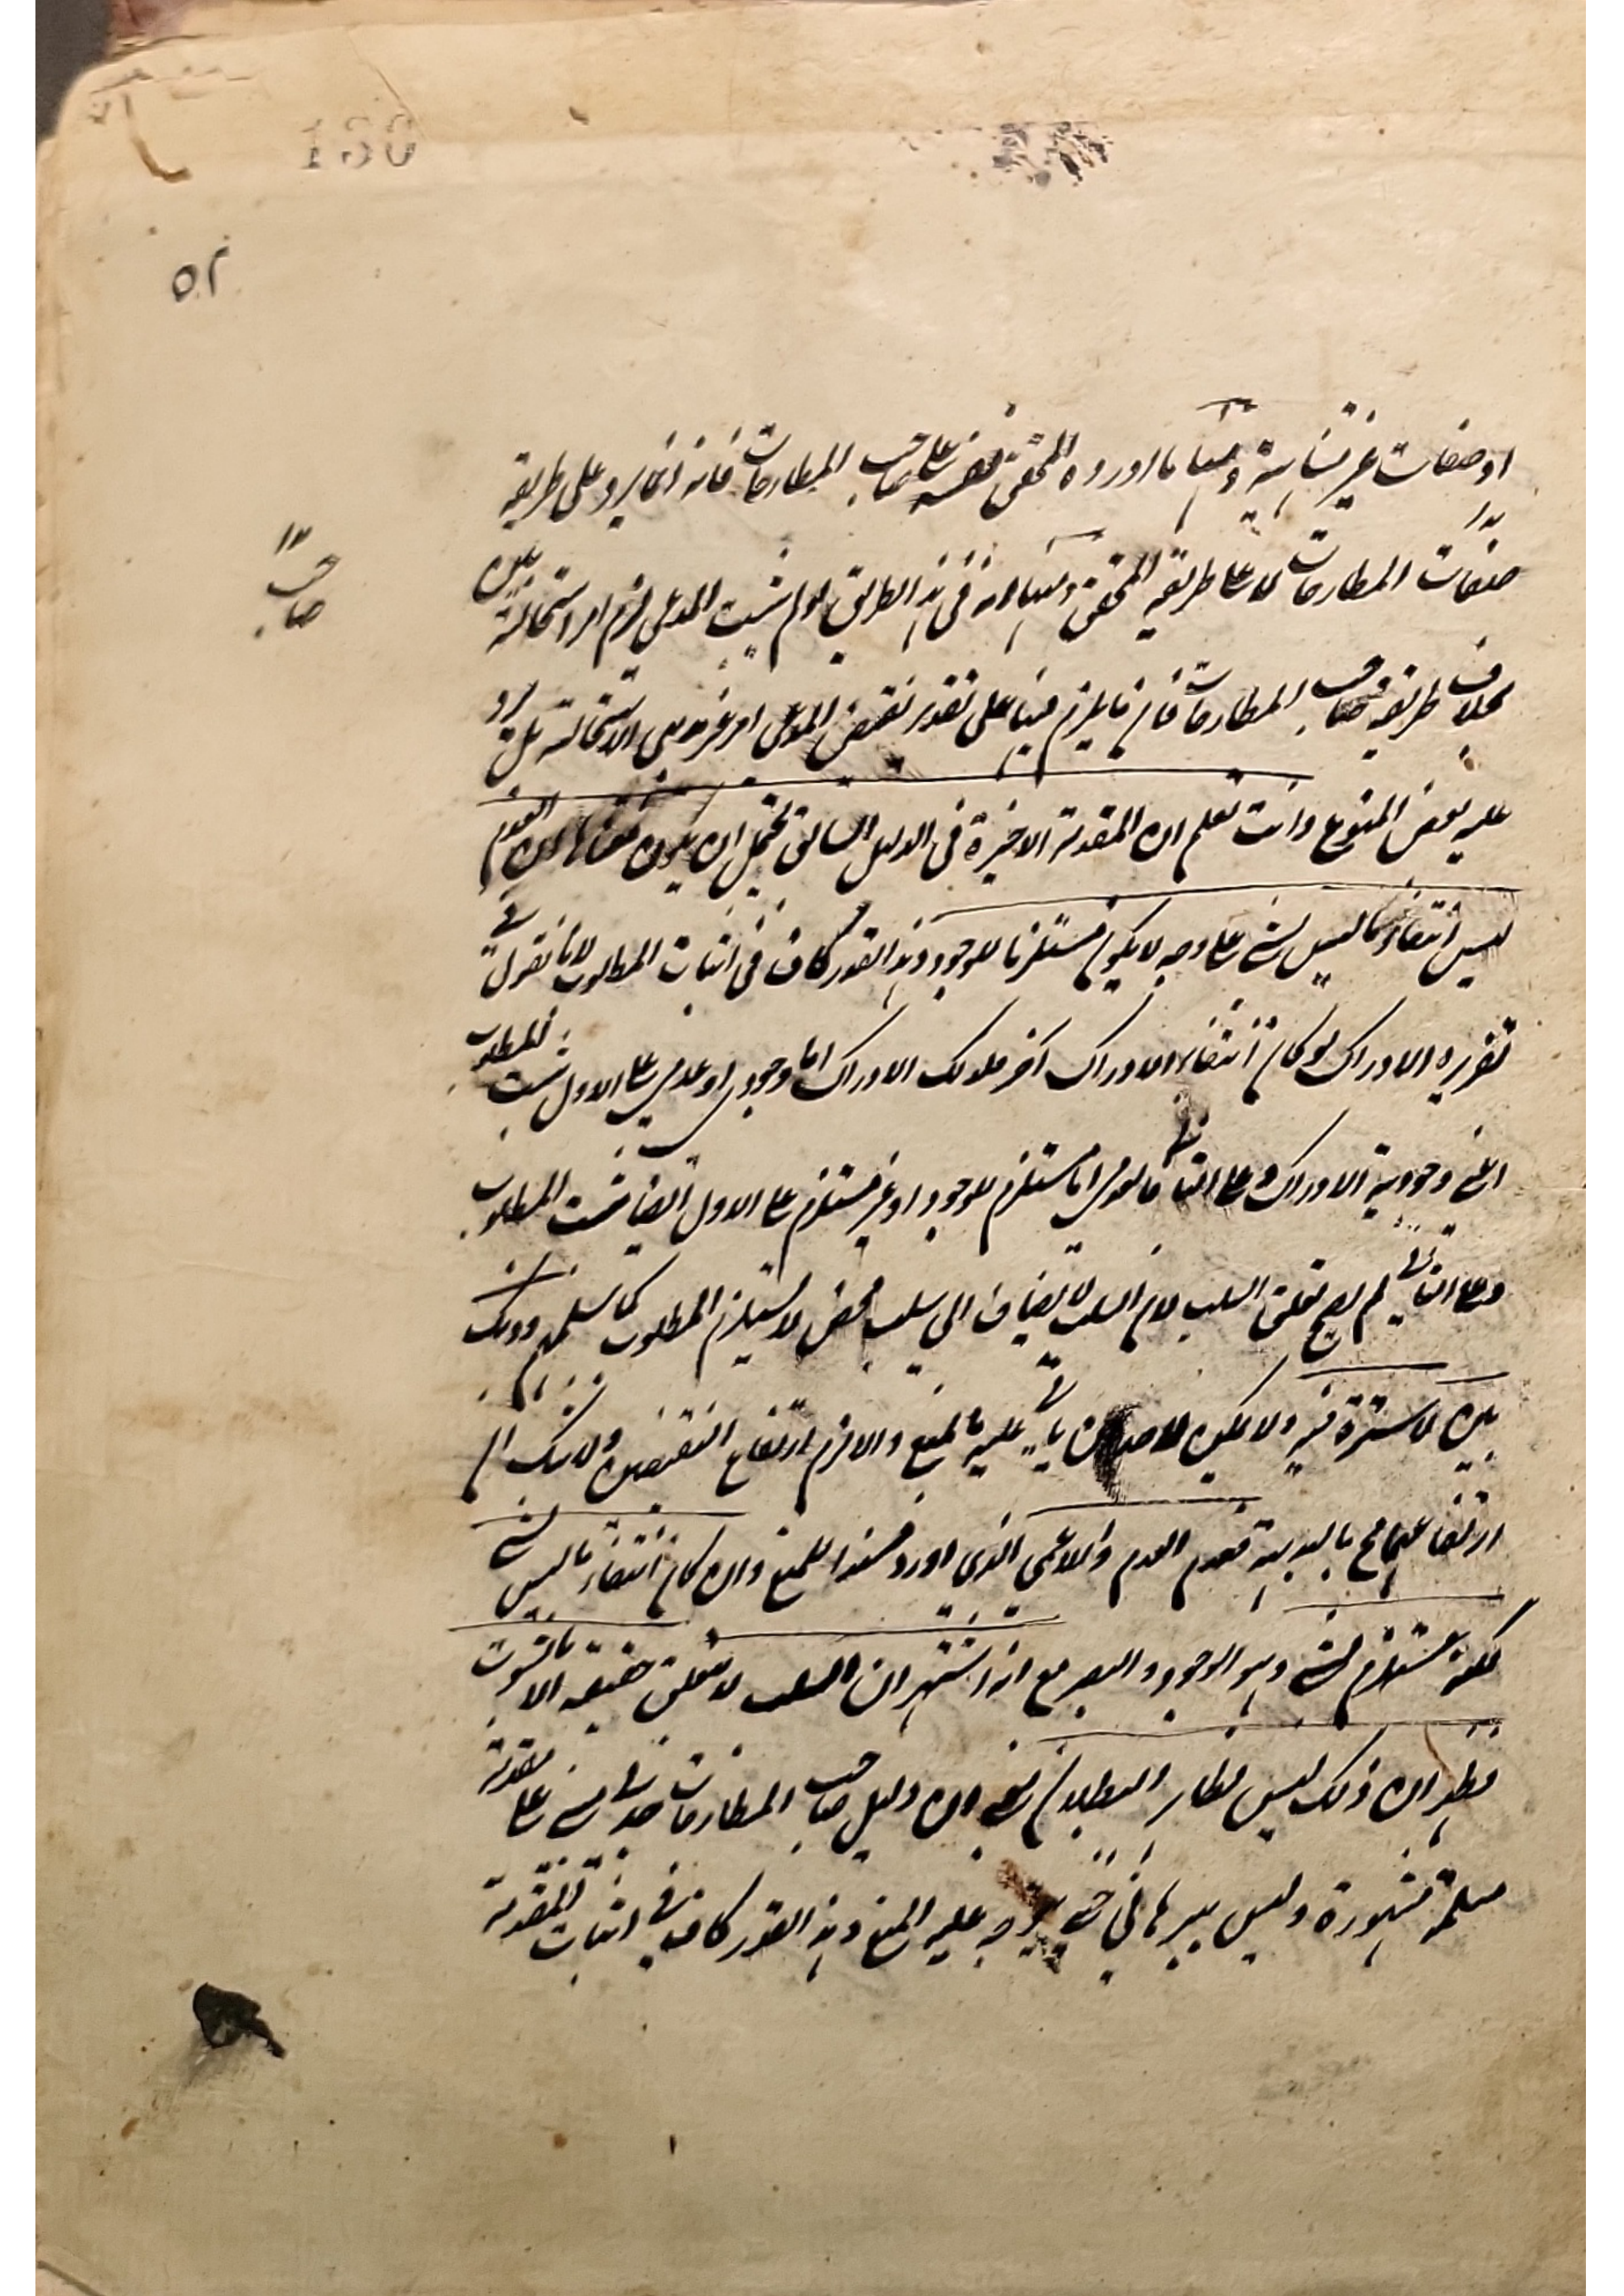 ٥٢
او صفات غير متناهية ومنها ما اورده المحقق نفسه على صاحب المطارحات فانه انما يرد على طريقة
صاحب
صفات المطارحات لا على طريقة المحقق ومنها انه في هذا الطريق لو لم يثبت المدعى لزم امر استحالته بين
بخلاف طريقة صاحب المطارحات فان ما يلزم فيها على تقدير نقيض المدعى امر غير بين الاستحالة بل يرد
عليه بعض المنوع وانت تعلم ان المقدمة الاخيرة في الدليل السابق يحتمل ان يكون معناها ان العدم
ليس انتفاء ما ليس بشئ على وجه لا يكون مستلزما للوجود وهذا القدر كاف في اثبات المطلوب لانا نقول في
تقريره الادراك لو كان انتفاء الادراك اخر فذلك الادراك اما وجودي او عدمي على الاول يثبت المطلوب
اعني وجودية الادراك وعلى الثاني فالعدمي اما مستلزم للوجود او غير مستلزم على الاول ايضا يثبت المطلوب
وعلى الثاني لم يصح تعلق السلب لان السلب لا يضاف الى سلب محض لا يستلزم المطلوب كما سلمتم وذلك
بين لا سترة فيه ولا يمكن لاحد ان يأتي عليه بالمنع والا لزم ارتفاع النقيضين ولا شك ان
ارتفاعهما مح بالبديهة فعدم العدم واللاعمى الذي اورد مسندا للمنع وان كان انتفاء ما ليس بشئ
لكنه مستلزم لشئ وهو الوجود والبصر مع انه اشتهر ان السلب لا يتعلق حقيقة الا بالثبوت
فظهر ان ذلك ليس بظاهر البطلان نعم ان دليل صاحب المطارحات جدلي مبني على مقدمة
مسلمة مشهورة وليس ببرهاني حتى يتوجه عليه المنع وهذا القدر كاف في اثبات المقدمة